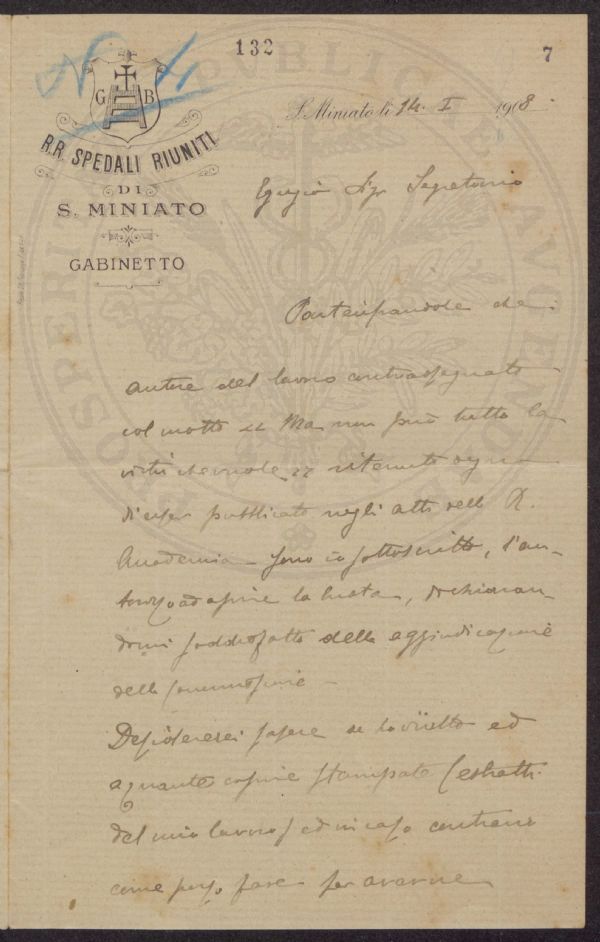 N 4
132
7
G B
R.R. SPEDALI RIUNITI
DI
S. MINIATO
GABINETTO
S. Miniato li 14. I 1908.
Egregio Sigr Segretario
Partecipandole che
autore del lavoro contrassegnato
col motto « Ma non può tutto la
virtù che vuole » ritenuto degno
di esser pubblicato negli atti della R.
Accademia sono io sottoscritto, l'au-
torizzo ad aprire la busta, dichiaran-
domi soddisfatto della aggiudicazione
della Commissione
Desidererei sapere se ho diritto ed
a quante copie stampate (estratti
del mio lavoro) ed in caso contrario
come posso fare per averne